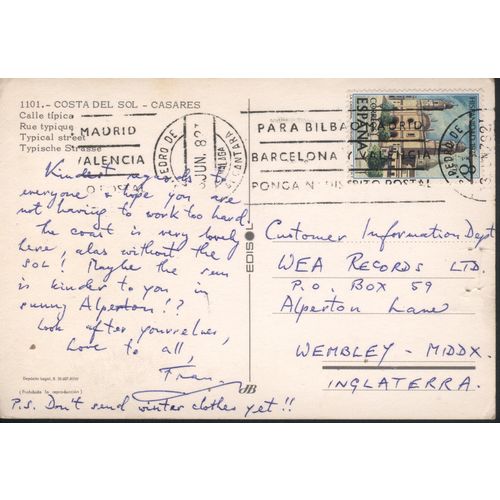 1101.- COSTA DEL SOL - CASARES
Calle típica
Rue typique
Typical street
Typische Strasse
MADRID
VALENCIA
PEDRO DE ALCANTARA
JUN. 82
MALAGA
PARA BILBAO MADRID
BARCELONA Y VALENCIA
PONGA Nº DISTRITO POSTAL
ESPAÑA
CORREOS
8
Kindest regards to
everyone & hope you are
not having to work too hard.
The coast is very lovely
here, alas without the
SOL! Maybe the sun
is kinder to you in
sunny Alperton!?
Look after yourselves,
Love to all,
Fran
P.S. Don't send winter clothes yet!!
EDISOL
Depósito legal, B.
(Prohibida la reproducción)
JB
Customer Information Dept
WEA RECORDS LTD.
P.O. BOX 59
Alperton Lane
WEMBLEY - MIDDX.
INGLATERRA.